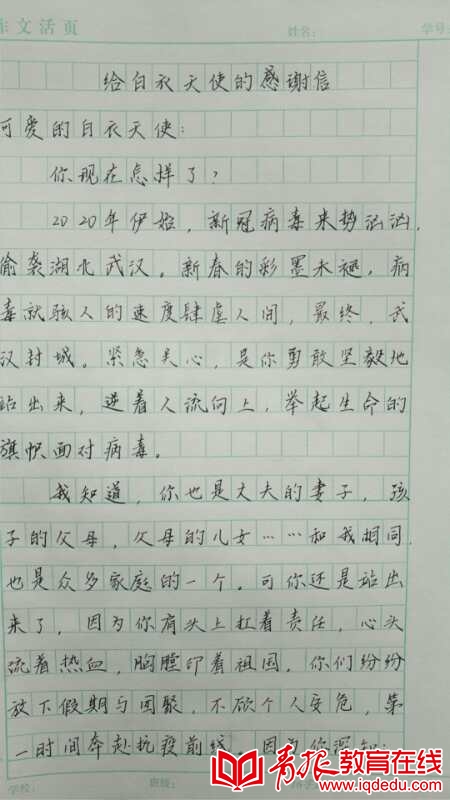 作文活页 姓名: 学号:
给白衣天使的感谢信
可爱的白衣天使:
你现在怎样了?
2020年伊始,新冠病毒来势汹汹,
偷袭湖北武汉。新春的彩墨未褪,病
毒就骇人的速度肆虐人间,最终,武
汉封城。紧急关心,是你勇敢坚毅地
站出来,逆着人流向上,举起生命的
旗帜面对病毒。
我知道,你也是丈夫的妻子,孩
子的父母,父母的儿女……和我相同,
也是众多家庭的一个。可你还是站出
来了,因为你肩头上扛着责任,心头
流着热血,胸膛印着祖国,你们纷纷
放下假期与团聚,不顾个人安危,第
一时间奔赴抗疫前线。因为你深知:
学校: 班级:
青报教育在线
www.iqdedu.com